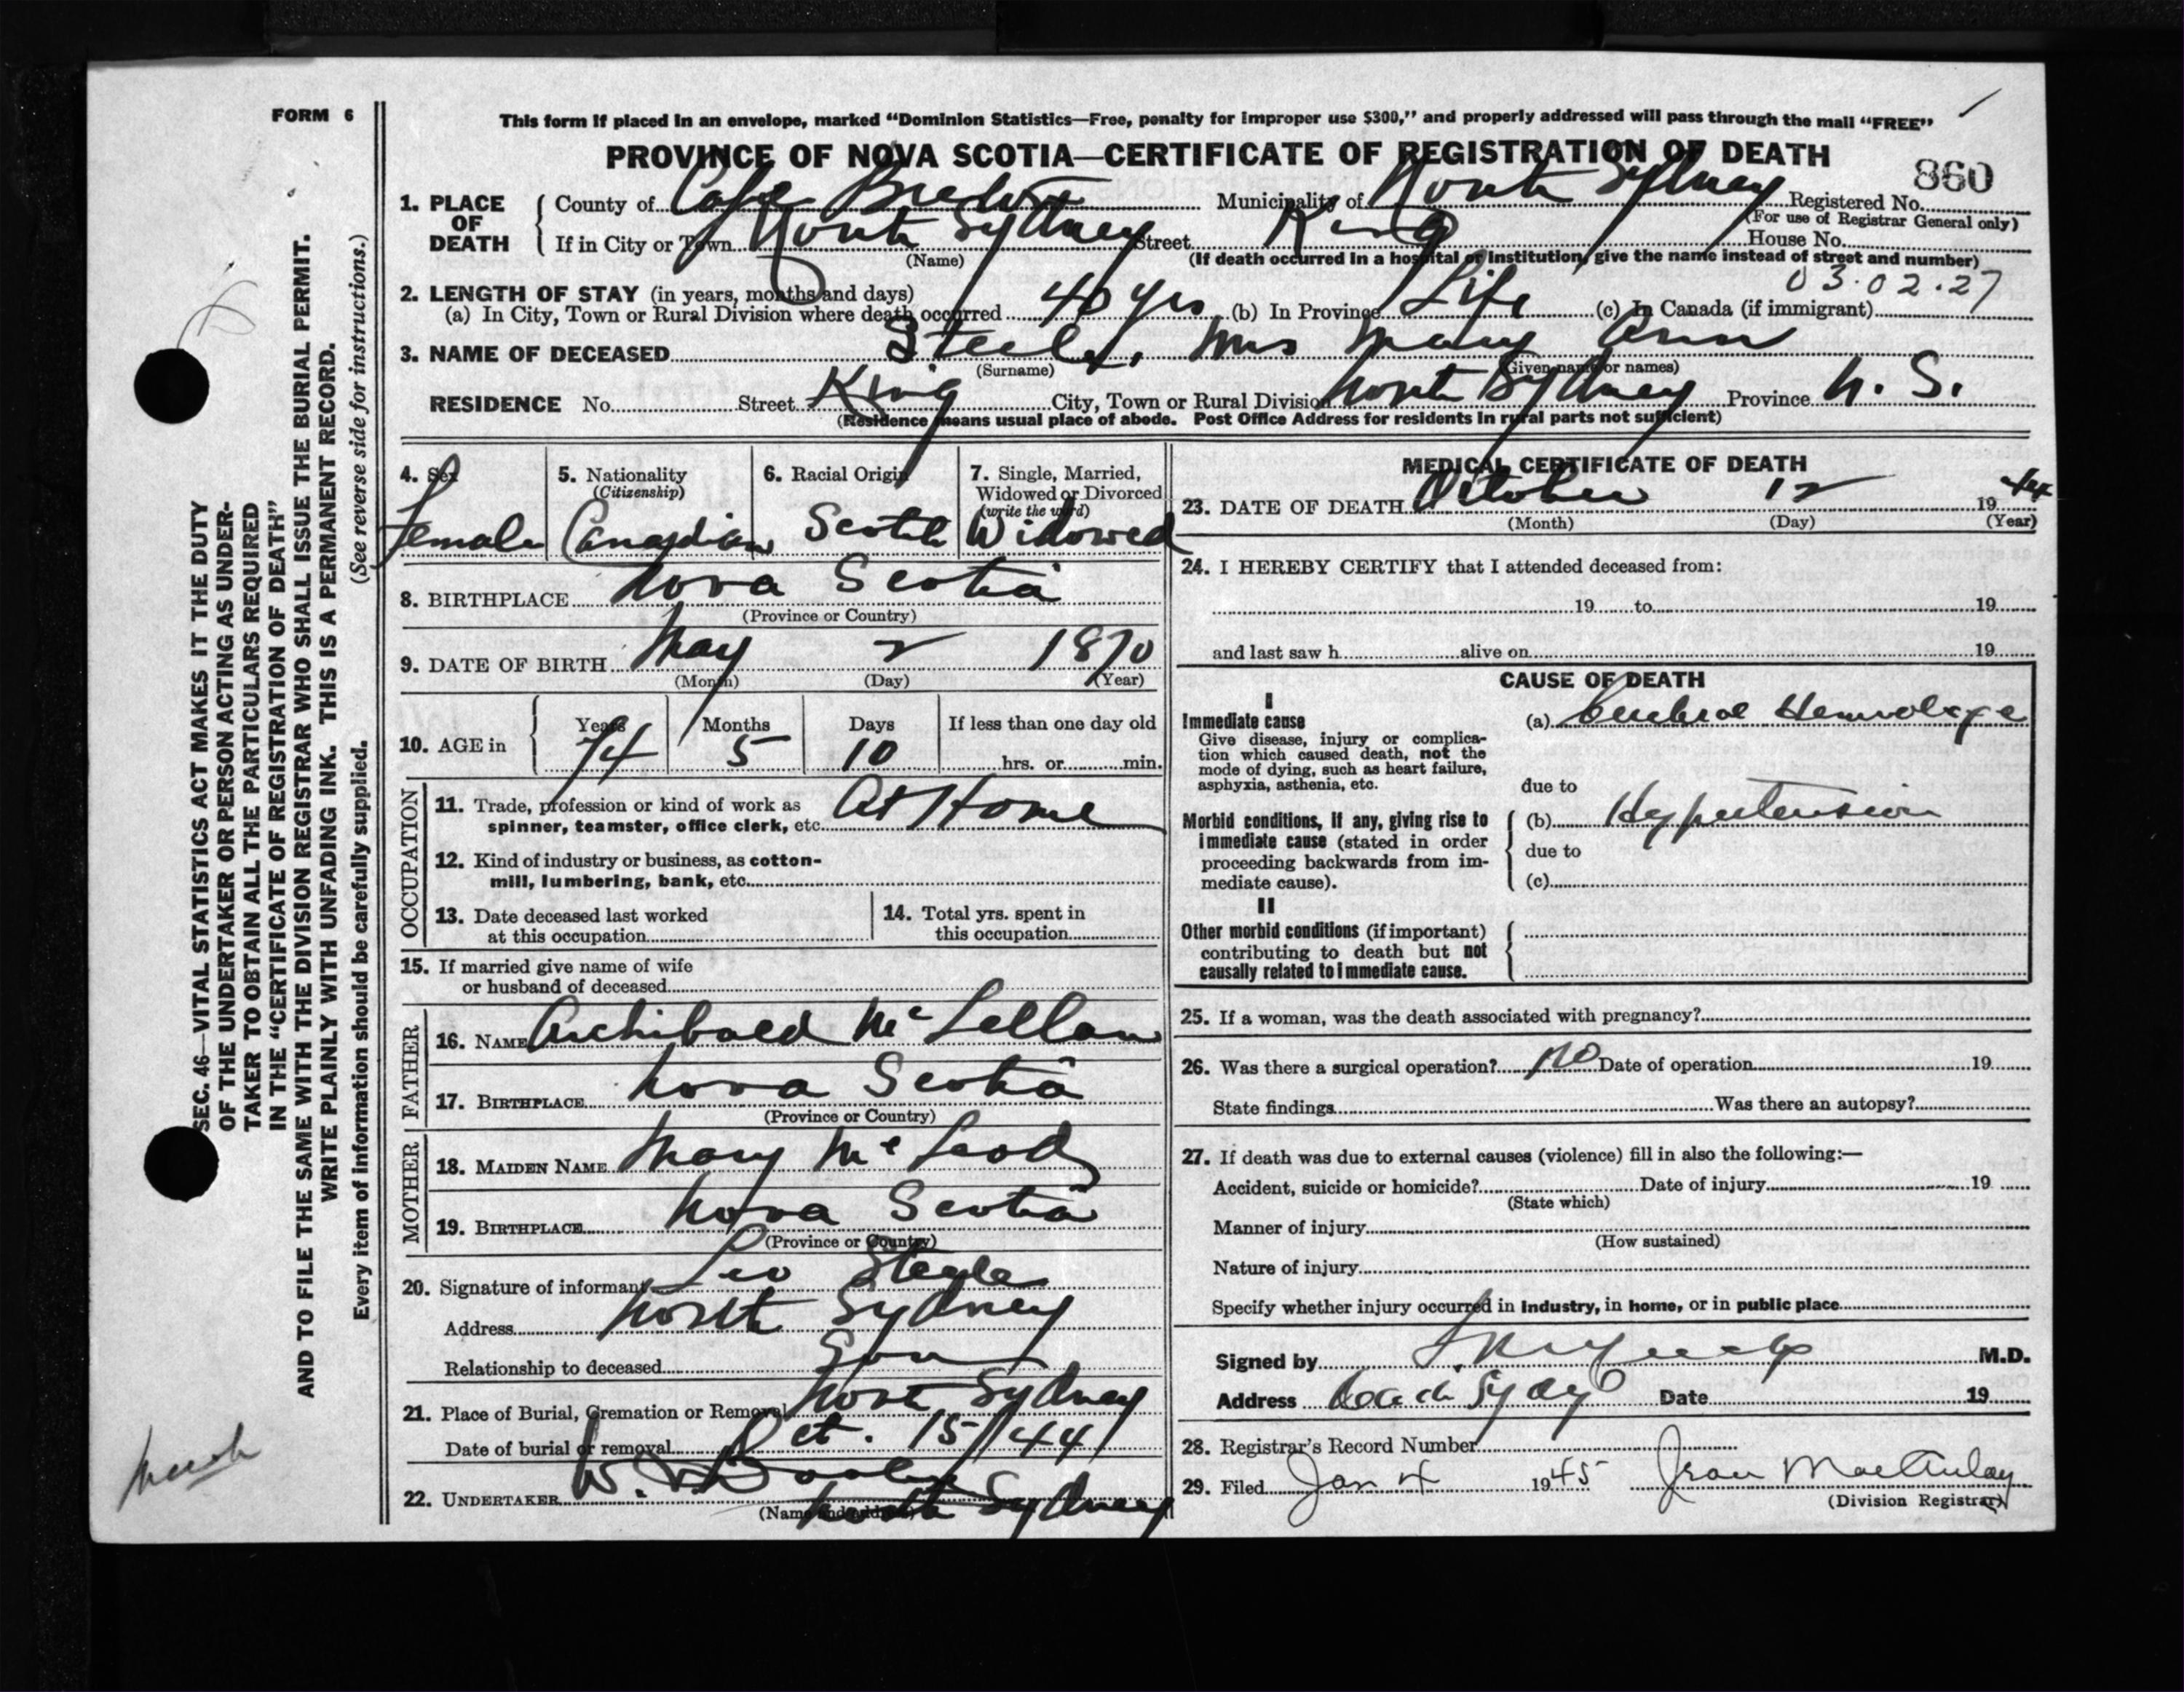 FORM 6
This form if placed in an envelope, marked “Dominion Statistics—Free, penalty for improper use $300,” and properly addressed will pass through the mail “FREE”
PROVINCE OF NOVA SCOTIA—CERTIFICATE OF REGISTRATION OF DEATH
860
1. PLACE OF DEATH
County of Cape Breton Municipality of North Sydney Registered No.
(For use of Registrar General only)
If in City or Town North Sydney Street King House No.
(Name) (If death occurred in a hospital or institution, give the name instead of street and number)
03.02.27
2. LENGTH OF STAY (in years, months and days)
(a) In City, Town or Rural Division where death occurred 40 yrs (b) In Province Life (c) In Canada (if immigrant)
3. NAME OF DECEASED Steele, Mrs Mary Ann
(Surname) (Given name or names)
RESIDENCE No. Street King City, Town or Rural Division North Sydney Province N. S.
(Residence means usual place of abode. Post Office Address for residents in rural parts not sufficient)
4. Sex
Female
5. Nationality
(Citizenship)
Canadian
6. Racial Origin
Scotch
7. Single, Married,
Widowed or Divorced
(write the word)
Widowed
8. BIRTHPLACE Nova Scotia
(Province or Country)
9. DATE OF BIRTH May 2 1870
(Month) (Day) (Year)
10. AGE in
Years Months Days If less than one day old
74 5 10 hrs. or min.
OCCUPATION
11. Trade, profession or kind of work as
spinner, teamster, office clerk, etc. At Home
12. Kind of industry or business, as cotton-
mill, lumbering, bank, etc.
13. Date deceased last worked
at this occupation
14. Total yrs. spent in
this occupation
15. If married give name of wife
or husband of deceased
FATHER
16. NAME Archibald McLellan
17. BIRTHPLACE Nova Scotia
(Province or Country)
MOTHER
18. MAIDEN NAME Mary McLeod
19. BIRTHPLACE Nova Scotia
(Province or Country)
20. Signature of informant Leo Steele
Address North Sydney
Relationship to deceased Son
21. Place of Burial, Cremation or Removal North Sydney
Date of burial or removal Oct. 15/44
22. UNDERTAKER W.
North Sydney
(Name and address)
MEDICAL CERTIFICATE OF DEATH
23. DATE OF DEATH October 12 1944
(Month) (Day) (Year)
24. I HEREBY CERTIFY that I attended deceased from:
19 to 19
and last saw h alive on 19
CAUSE OF DEATH
I
Immediate cause
Give disease, injury or complica-
tion which caused death, not the
mode of dying, such as heart failure,
asphyxia, asthenia, etc.
(a) Cerebral Hemorrhage
due to
Morbid conditions, if any, giving rise to
immediate cause (stated in order
proceeding backwards from im-
mediate cause).
(b) Hypertension
due to
(c)
II
Other morbid conditions (if important)
contributing to death but not
causally related to immediate cause.
25. If a woman, was the death associated with pregnancy?
26. Was there a surgical operation? no Date of operation 19
State findings Was there an autopsy?
27. If death was due to external causes (violence) fill in also the following:—
Accident, suicide or homicide? Date of injury 19
(State which)
Manner of injury
(How sustained)
Nature of injury
Specify whether injury occurred in industry, in home, or in public place
Signed by M.D.
Address Date 19
28. Registrar's Record Number
29. Filed Jan 4 1945 Jean MacAulay
(Division Registrar)
SEC. 46—VITAL STATISTICS ACT MAKES IT THE DUTY
OF THE UNDERTAKER OR PERSON ACTING AS UNDER-
TAKER TO OBTAIN ALL THE PARTICULARS REQUIRED
IN THE “CERTIFICATE OF REGISTRATION OF DEATH”
AND TO FILE THE SAME WITH THE DIVISION REGISTRAR WHO SHALL ISSUE THE BURIAL PERMIT.
WRITE PLAINLY WITH UNFADING INK. THIS IS A PERMANENT RECORD.
Every item of information should be carefully supplied. (See reverse side for instructions.)